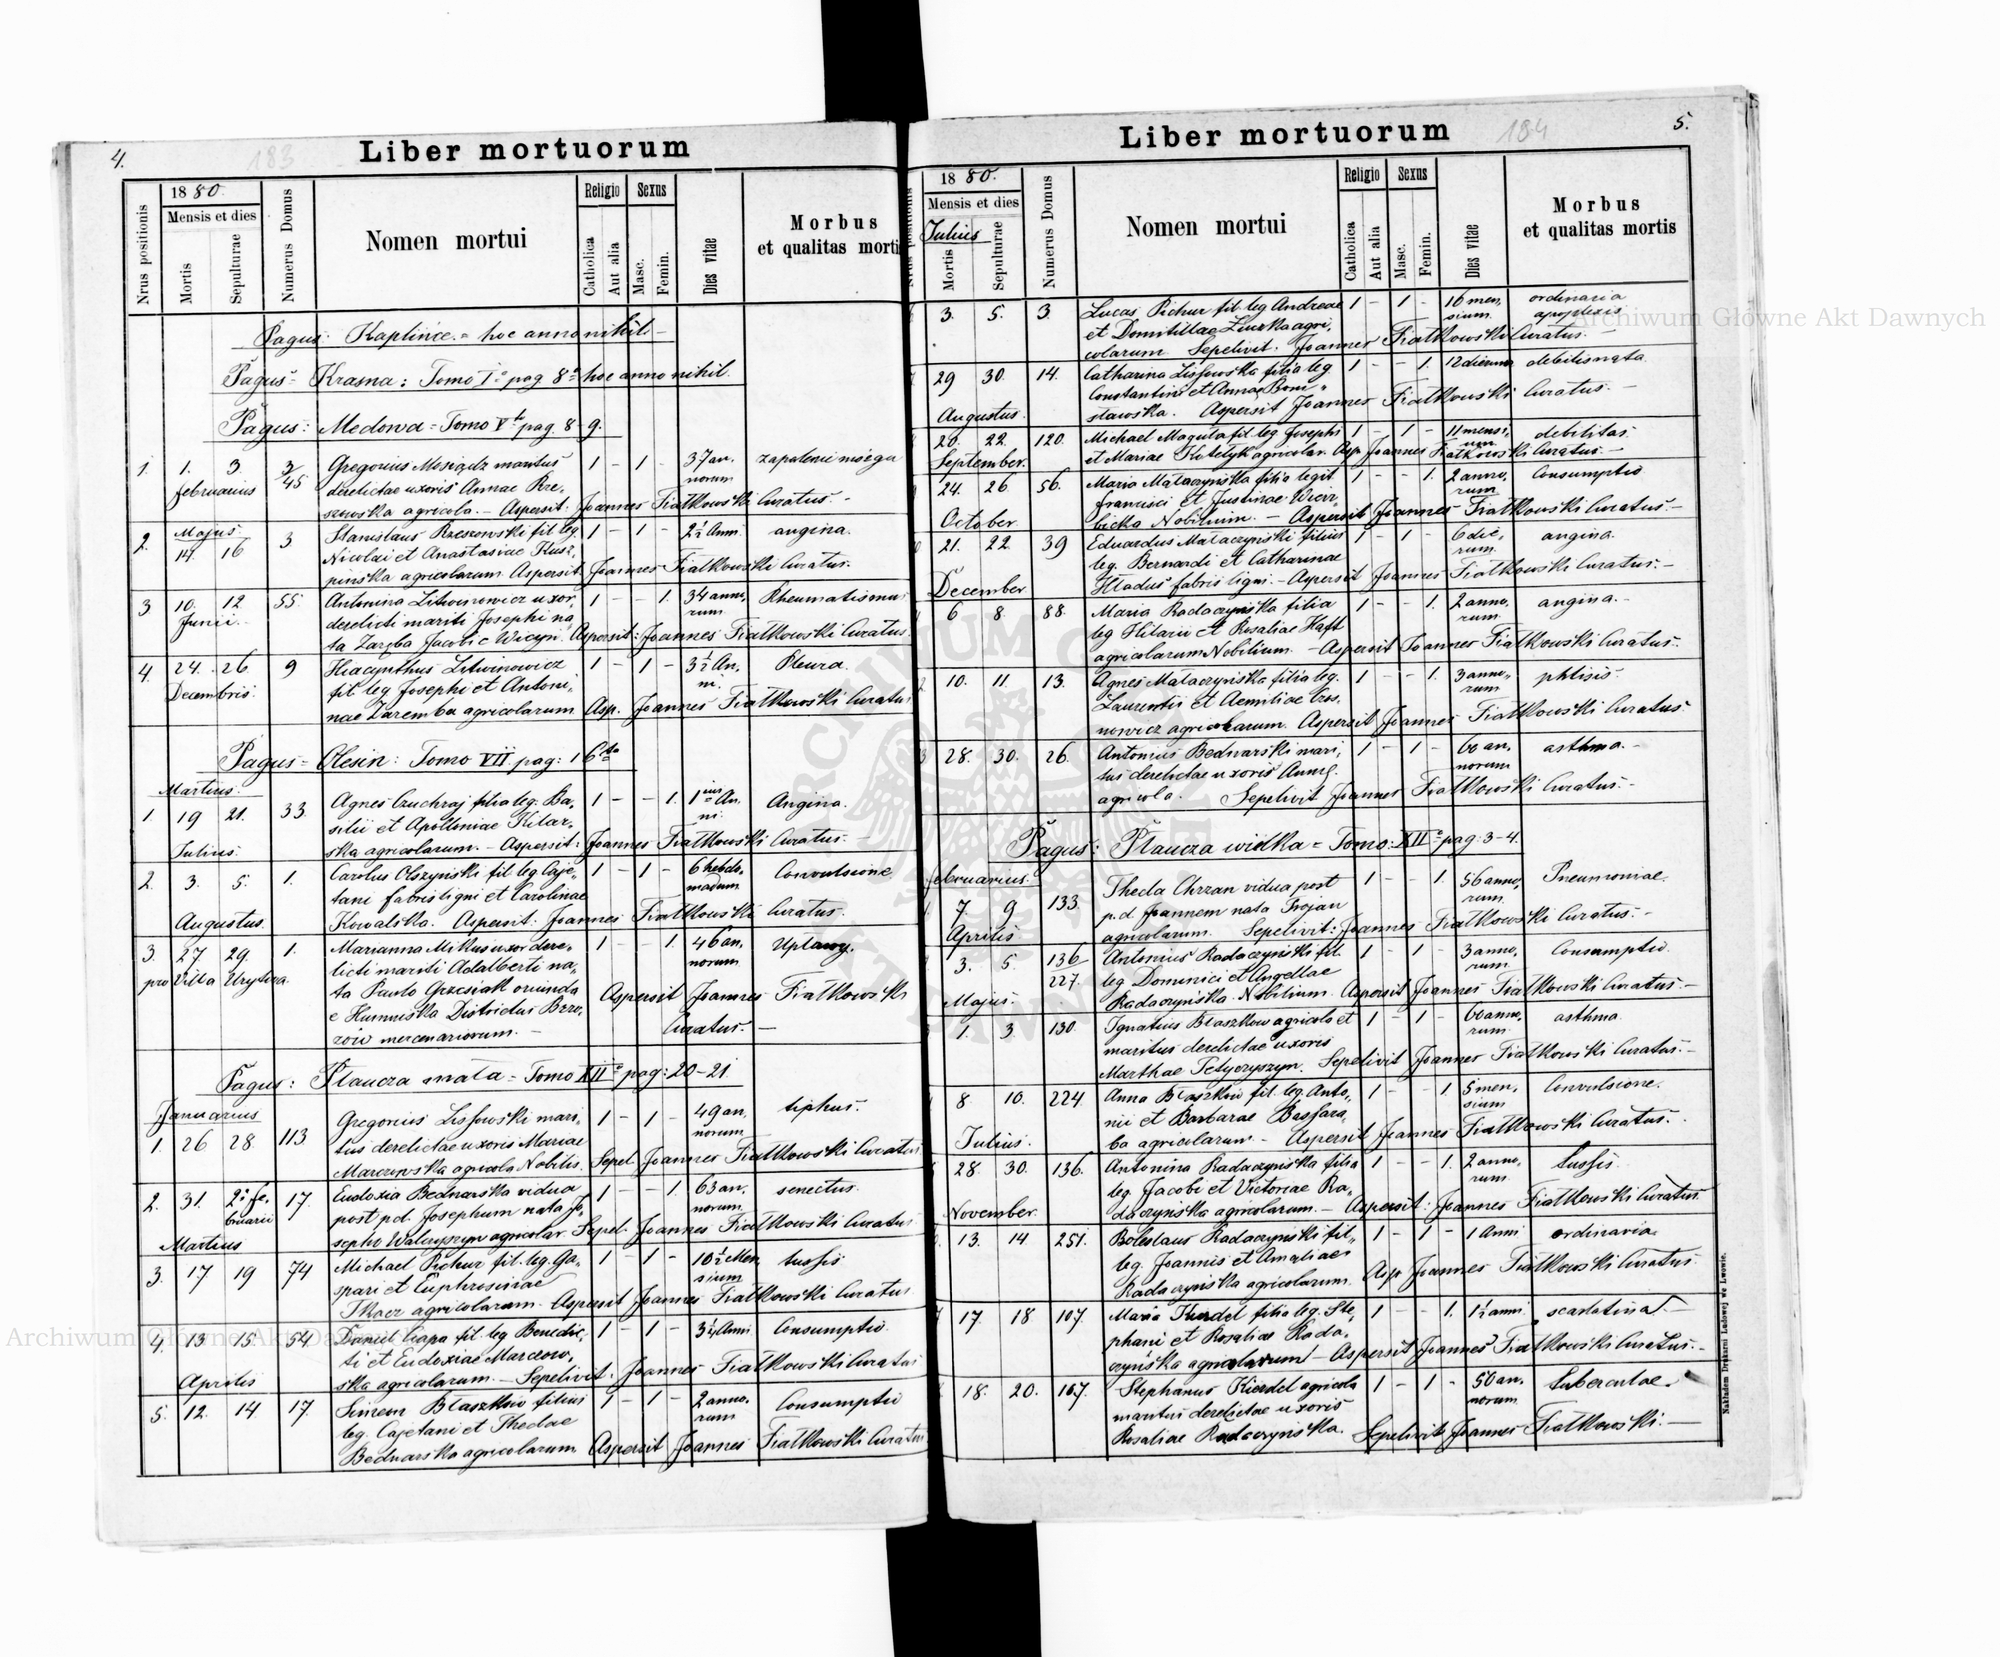 4.
183
Liber mortuorum
Nrus positionis
1880.
Mensis et dies
Mortis
Sepulturae
Numerus Domus
Nomen mortui
Religio
Catholica
Aut alia
Sexus
Masc.
Femin.
Dies vitae
Morbus
et qualitas mortis
Pagus: Kaplińce. = hoc anno nihil. -
Pagus = Krasna: Tomo I° pag 8ª hoc anno nihil.
Pagus: Medowa = Tomo Vto pag. 8-9.
1. 1. 3. 3/45 Gregorius Mosiądz maritus 1 - 1 - 37 an, zapalenie mózgu
februarius derelictae uxoris Annae Rze, norum
szowska agricola. - Aspersit: Joannes Fiatkowski Curatus. -
Majus
2. 14. 16 3 Stanislaus Rzeszowski fil. leg. 1 - 1 - 2½ Anni. angina.
Nicolai et Anastasiae
agricolarum. Aspersit. Joannes Fiatkowski Curatus.
3 10. 12. 55. Antonina Litwinowicz uxor, 1 - - 1. 34 anno, Rheumatismus
Junii. derelicti mariti Josephi na, rum.
ta Zaręba Jacobi e Wicyń Aspersit: Joannes Fiatkowski Curatus.
4. 24. 26. 9 Hiacynthus Litwinowicz 1 - 1 - 3½ An, Pleura.
Decembris. fil. leg. Josephi et Antoni, ni.
nae Zaremba agricolarum Asp. Joannes Fiatkowski Curatus
Pagus = Olesin: Tomo VII. pag: 16ta
Martius.
1. 19 21. 33. Agnes Czuchraj filia leg. Ba, 1 - - 1. 1ius An, Angina.
silii et Apolloniae Kitar, ni.
Julius. ska agricolarum. - Aspersit: Joannes Fiatkowski Curatus. -
2. 3. 5. 1. Carolus Olszyński fil. leg. Caje, 1 - 1 - 6 hebdo, Convulsione
tani fabris ligni et Carolinae madum
Augustus. Kowalska. Aspersit. Joannes Fiatkowski Curatus.
3. 27 29. 1. Marianna Mikus uxor dere, 1 - - 1. 46 an, Upławy.
pro Villa licti mariti Adalberti na, norum
ta Paulo Grzesiak oriunda Aspersit Joannes Fiatkowski
e Humniska Districtus Brzo, Curatus. -
zów mercenariorum. -
Pagus: Płaucza mała = Tomo XII° pag: 20-21
Januarius
1. 26 28. 113. Gregorius Lissowski mari, 1 - 1 - 49 an, tiphus.
tus derelictae uxoris Mariae norum
agricola Nobilis. Sepel. Joannes Fiatkowski Curatus
2. 31. 2. Fe, 17. Eudoxia Bednarska vidua 1 - - 1. 63 an, senectus.
bruarii post p.d. Josephum nata Jo, norum
Martius sepho agricolar. Sepel. Joannes Fiatkowski Curatus
3. 17 19 74 Michael Pichur fil. leg. Ga, 1 - 1 - 10½ Men, tussis
spari et Euphrosinae sium
Tkacz agricolarum. Aspersit Joannes Fiatkowski Curatus.
4. 13 15. 54. Daniel Czapa fil. leg. Benedic, 1 - 1 - 3½ Anni. Consumptio.
ti et Eudoxiae Marcow,
Aprilis ska agricolarum. - Sepelivit. Joannes Fiatkowski Curatus
5. 12. 14. 17. Simeon Błaszków filius 1 - 1 - 2 anno, Consumptio
leg. Cajetani et Theclae rum
Bednarska agricolarum Aspersit Joannes Fiatkowski Curatus
Liber mortuorum
184
5.
Nrus positionis
1880.
Mensis et dies
Julius
Mortis
Sepulturae
Numerus Domus
Nomen mortui
Religio
Catholica
Aut alia
Sexus
Masc.
Femin.
Dies vitae
Morbus
et qualitas mortis
3. 5. 3. Lucas Pichur fil. leg. Andreae 1 - 1 - 16 men, ordinaria
et Domitillae agri, sium. apoplexis
colarum. Sepelivit. Joannes Fiatkowski Curatus.
29 30. 14. Catharina Lissowska filia leg. 1 - - 1. 12 dierum debilis nata
Constantini et Annae Broni,
Augustus. sławska. Aspersit Joannes Fiatkowski Curatus. -
20. 22. 120. Michael Maguta fil. leg. Josephi 1 - 1 - 11 mensi, debilitas.
September. et Mariae agricolar. Asp Joannes Fiatkowski Curatus. -
um.
24. 26. 56. Maria Mataczyńska filia legit. 1 - - 1. 2 anno, Consumptio
Francisci et Justinae Wierz, rum.
October bicka Nobilium. - Aspersit Joannes Fiatkowski Curatus. -
21. 22. 39 Eduardus Mataczyński filius 1 - 1 - 6 die, angina.
leg. Bernardi et Catharinae rum.
December Hładus fabris ligni. - Aspersit Joannes Fiatkowski Curatus. -
6 8. 88. Maria Radaczyńska filia 1 - - 1. 2 anno, angina. -
leg Hilarii et Rosaliae Haft rum.
agricolarum Nobilium. - Aspersit Joannes Fiatkowski Curatus.
10. 11 13. Agnes Mataczyńska filia leg. 1 - - 1. 3 anno, phtisis.
Laurentii et Aemiliae rum
nowicz agricolarum. Aspersit Joannes Fiatkowski Curatus.
28. 30. 26. Antonius Bednarski mari, 1 - 1 - 60 an, asthma. -
tus derelictae uxoris Annae. norum
agricola. Sepelivit Joannes Fiatkowski Curatus. -
Pagus: Płaucza wielka = Tomo: XII° pag: 3-4.
februarius.
7. 9 133. Thecla Chrzan vidua post 1 - - 1. 56 anno, Pneumoniae.
p.d. Joannem nata Trojan rum.
Aprilis agricolarum. Sepelivit: Joannes Fiatkowski Curatus. -
3. 5. 136/227. Antonius Radaczyński fil. 1 - 1 - 3 anno, Consumptio.
leg. Dominici et Angellae rum.
Majus. Radaczyńska Nobilium. Aspersit Joannes Fiatkowski Curatus. -
1. 3 130. Ignatius Błaszków agricola et 1 - 1 - 60 anno, asthma.
maritus derelictae uxoris rum.
Marthae Petryczyn. Sepelivit Joannes Fiatkowski Curatus. -
8 10. 224. Anna Błaszków fil. leg. Anto, 1 - - 1. 5 men, Convulsione.
nii et Barbarae Bassara, sium
Julius. ba agricolarum - Aspersit Joannes Fiatkowski Curatus.
28. 30. 136. Antonina Radaczyńska filia 1 - - 1. 2 anno, tussis.
leg. Jacobi et Victoriae Ra, rum.
November. daczyńska agricolarum. - Aspersit: Joannes Fiatkowski Curatus.
13. 14 251. Boleslaus Radaczyński fil. 1 - 1 - 1 Anni ordinaria
leg. Joannis et Amaliae
Radaczyńska agricolarum. Asp Joannes Fiatkowski Curatus.
17. 18 107. Maria Kierdel filia leg. Ste, 1 - - 1. 1½ anni. scarlatina. -
phani et Rosaliae Rada,
czyńska agricolarum - Aspersit Joannes Fiatkowski Curatus. -
18. 20. 107. Stephanus Kierdel agricola 1 - 1 - 50 an, Tuberculae.
maritus derelictae uxoris norum
Rosaliae Radaczyńska. Sepelivit Joannes Fiatkowski. -
Nakładem Drukarni Ludowej we Lwowie.
Archiwum Główne Akt Dawnych
Archiwum Główne Akt Dawnych